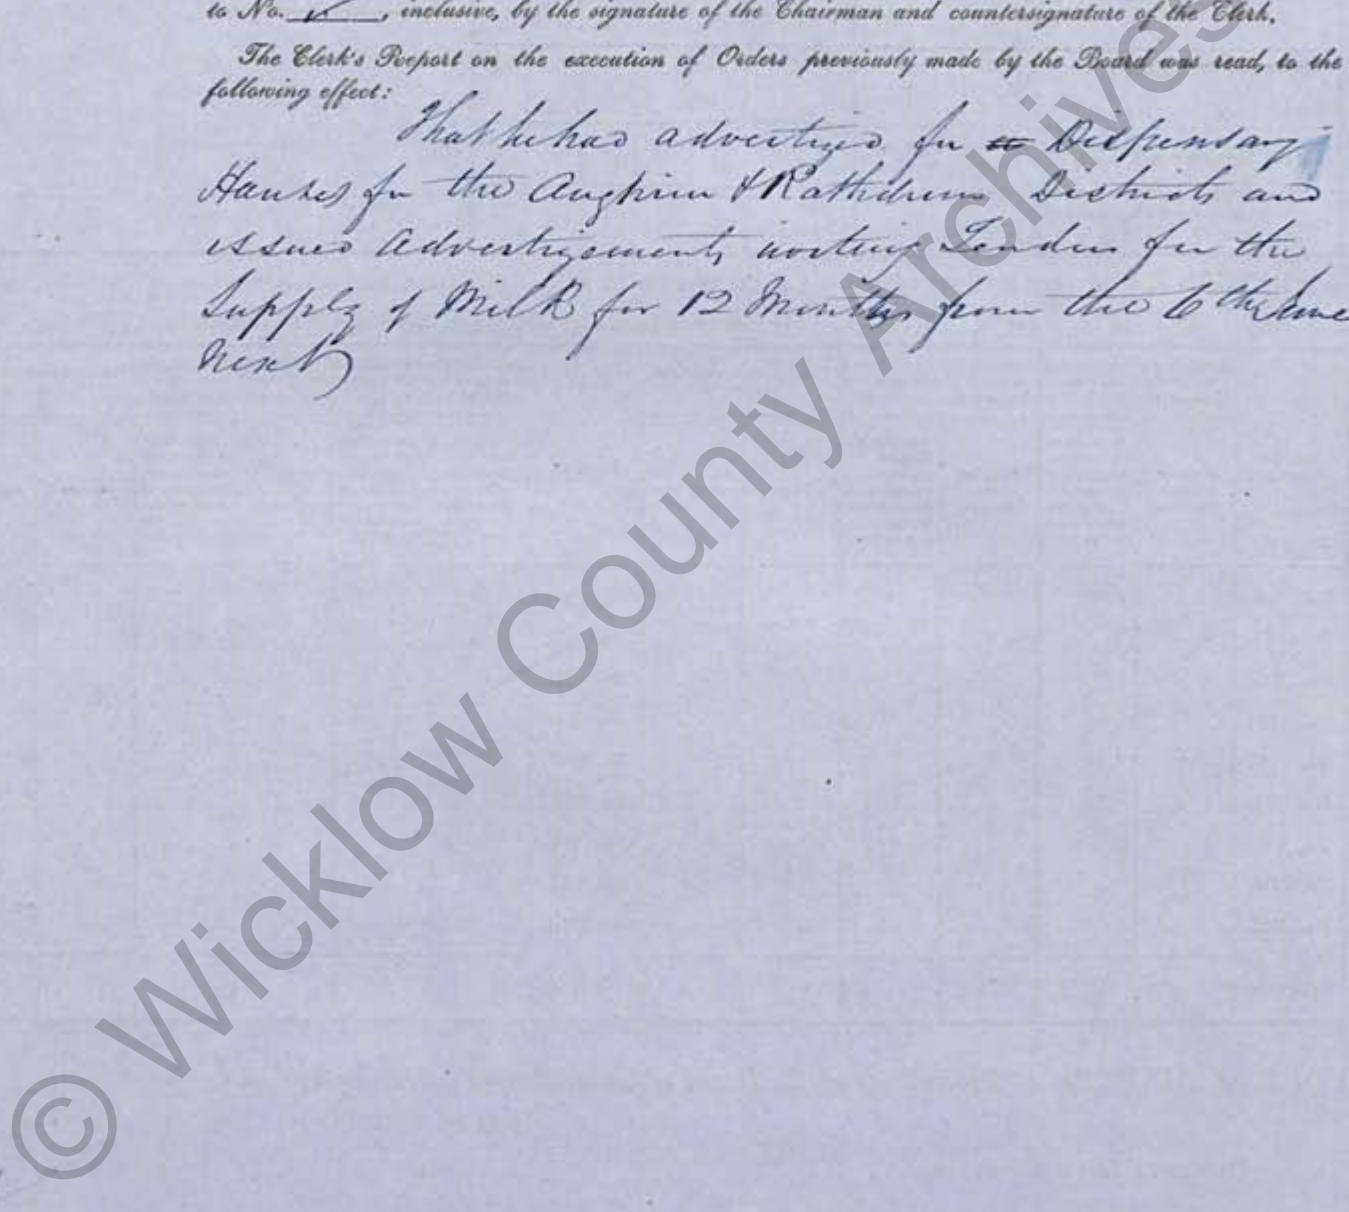 to No. ✓, inclusive, by the signature of the Chairman and countersignature of the Clerk.
The Clerk's Report on the execution of Orders previously made by the Board was read, to the
following effect:
That he had advertized for Dispensary
Houses for the Aughrim & Rathdrum Districts and
issued advertizements inviting Tenders for the
Supply of Milk for 12 Months from the 6th June
next
© Wicklow County Archives